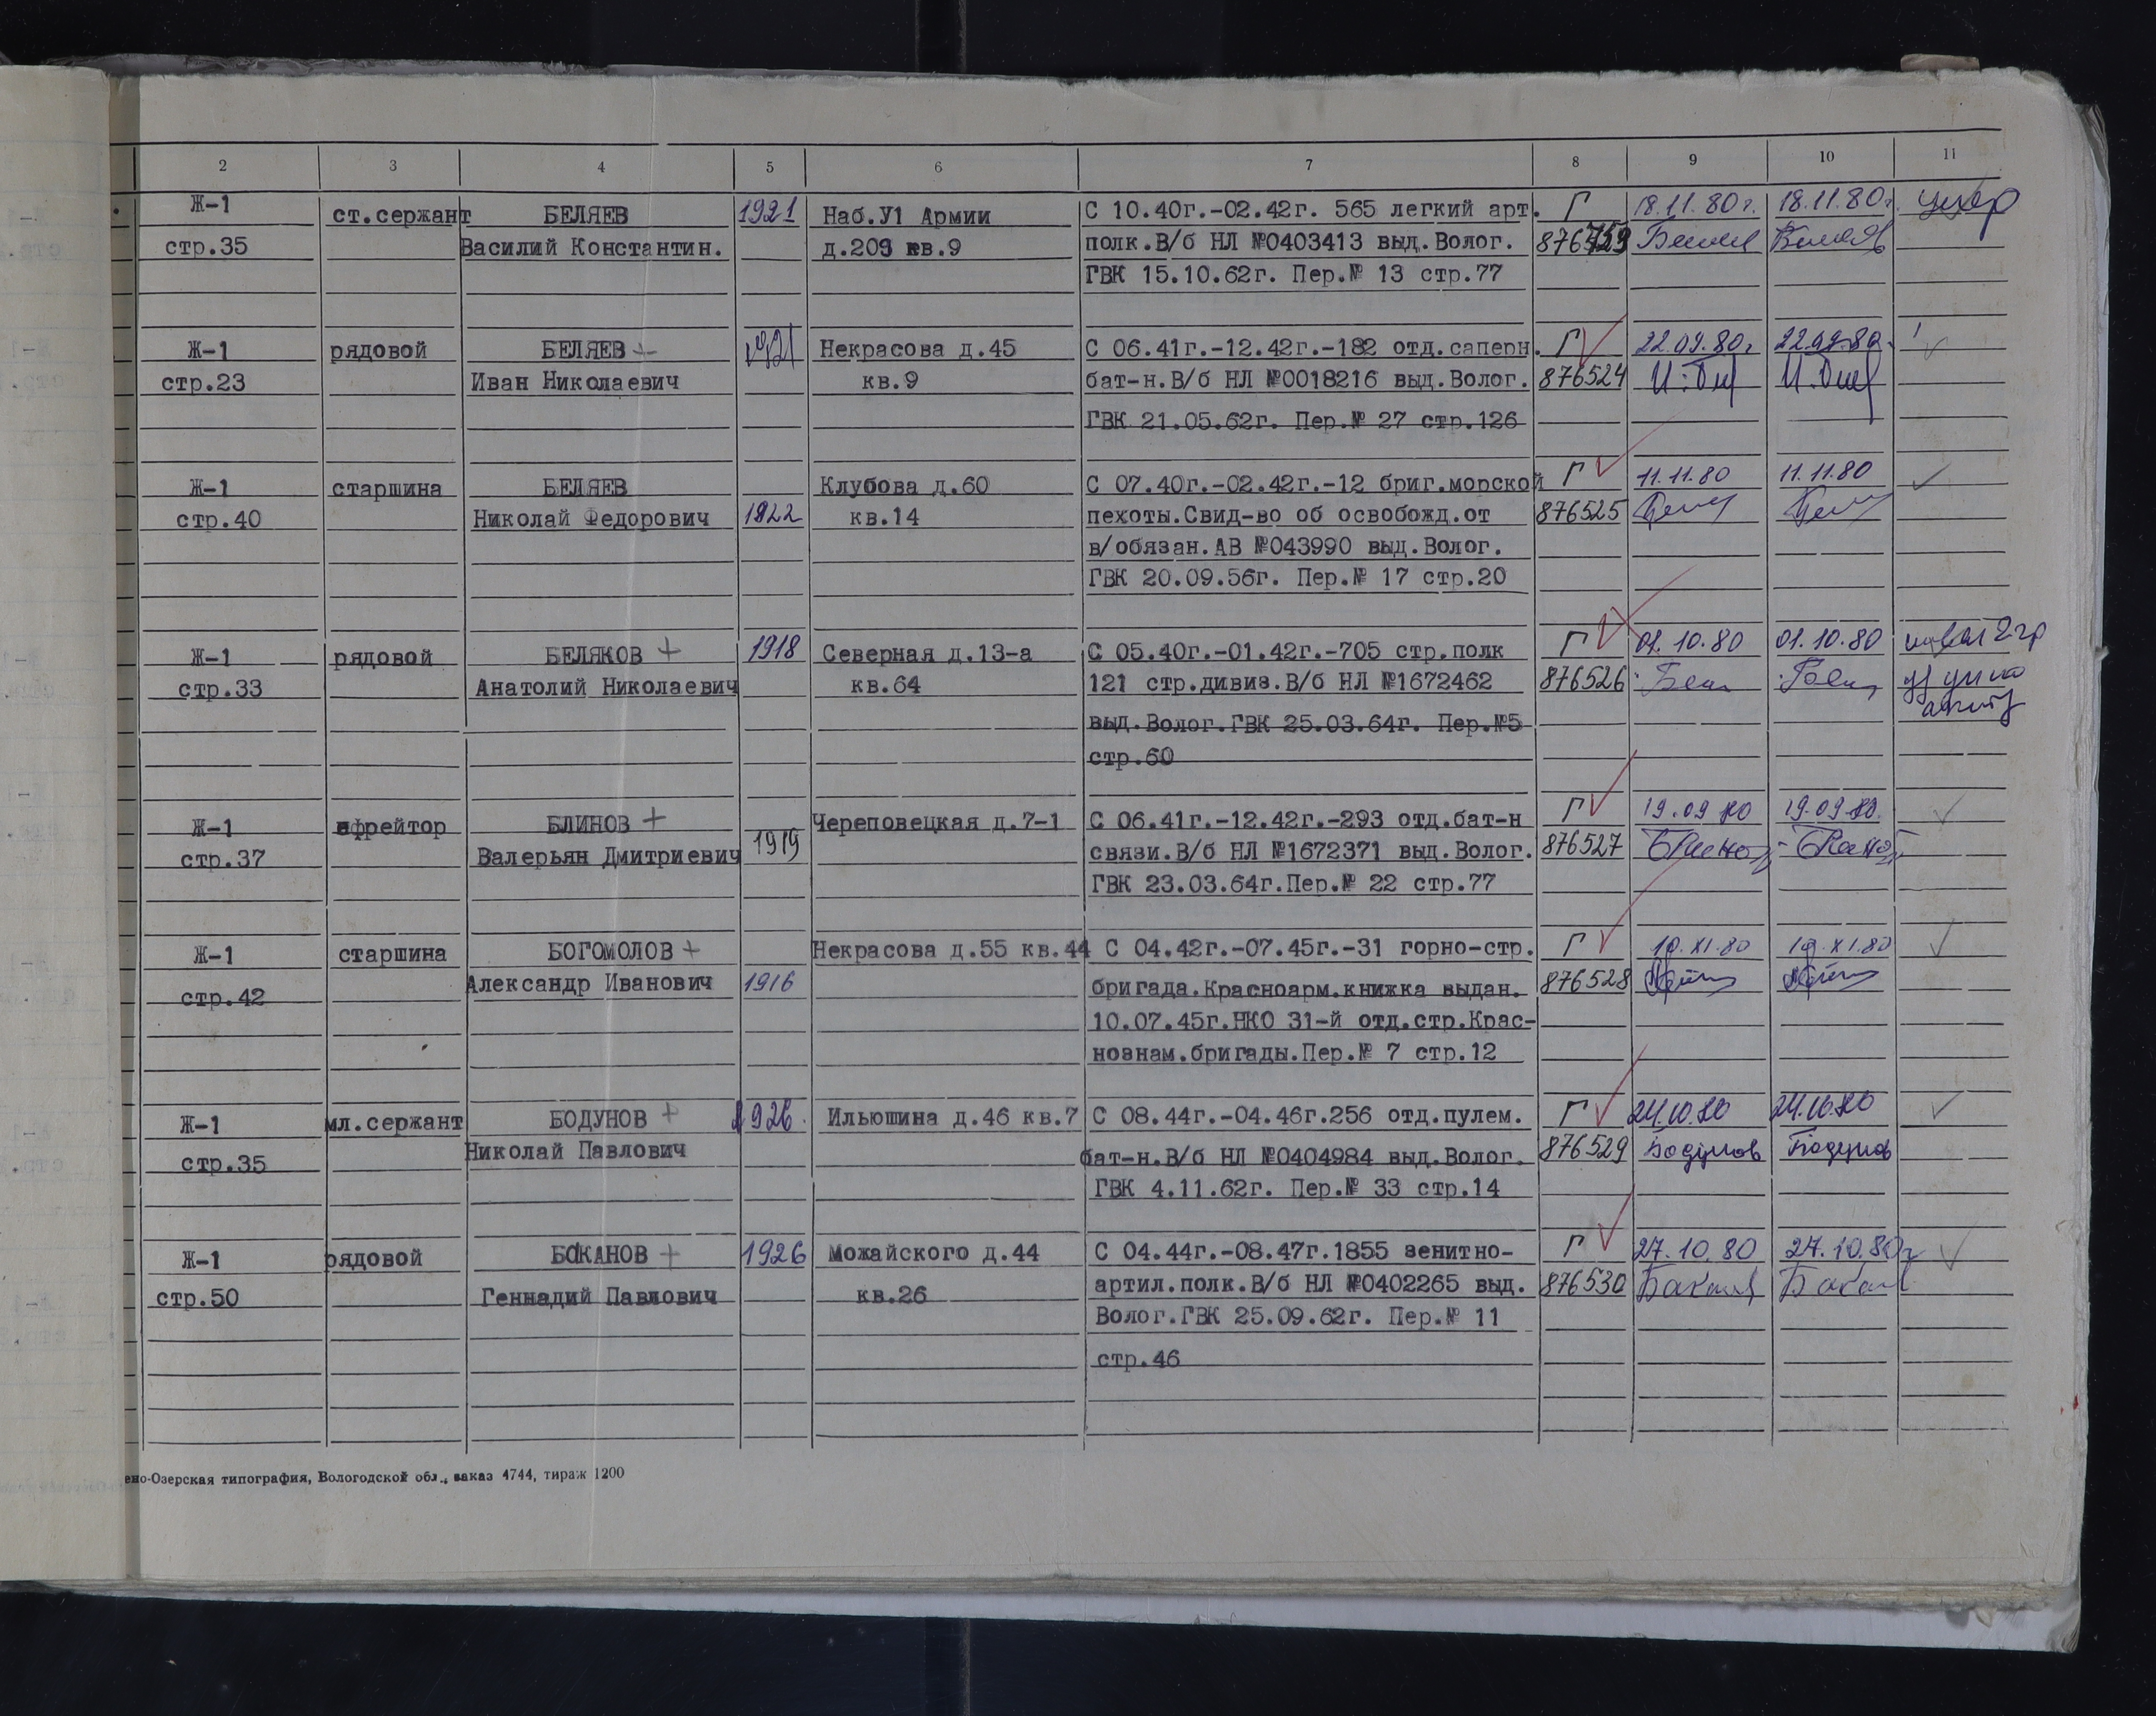 2 3 4 5 6 7 8 9 10 11
Ж-1 ст.сержант БЕЛЯЕВ 1921 Наб.У1 Армии С 10.40г.-02.42г. 565 легкий арт. Г 18.11.80г. 18.11.80г.
стр.35 Василий Константин. д.209 кв.9 полк.В/б НЛ №0403413 выд.Волог.
ГВК 15.10.62г. Пер.№ 13 стр.77
Ж-1 рядовой БЕЛЯЕВ + 1921 Некрасова д.45 С 06.41г.-12.42г.-182 отд.саперн. Г 22.09.80г 22.09.80.
стр.23 Иван Николаевич кв.9 бат-н.В/б НЛ №0018216 выд.Волог. 876524
ГВК 21.05.62г. Пер.№ 27 стр.126
Ж-1 старшина БЕЛЯЕВ Клубова д.60 С 07.40г.-02.42г.-12 бриг.морской Г 11.11.80 11.11.80
стр.40 Николай Федорович 1922 кв.14 пехоты.Свид-во об освобожд.от 876525
в/обязан.АВ №043990 выд.Волог.
ГВК 20.09.56г. Пер.№ 17 стр.20
Ж-1 рядовой БЕЛЯКОВ + 1918 Северная д.13-а С 05.40г.-01.42г.-705 стр.полк Г 01.10.80 01.10.80
стр.33 Анатолий Николаевич кв.64 121 стр.дивиз.В/б НЛ №1672462 876526
выд.Волог.ГВК 25.03.64г. Пер.№5
стр.60
Ж-1 ефрейтор БЛИНОВ + Череповецкая д.7-1 С 06.41г.-12.42г.-293 отд.бат-н Г 19.09.80 19.09.80.
стр.37 Валерьян Дмитриевич 1919 связи.В/б НЛ №1672371 выд.Волог. 876527
ГВК 23.03.64г.Пер.№ 22 стр.77
Ж-1 старшина БОГОМОЛОВ + Некрасова д.55 кв.44 С 04.42г.-07.45г.-31 горно-стр. Г 19.XI.80 19.XI.80
стр.42 Александр Иванович 1916 бригада.Красноарм.книжка выдан. 876528
10.07.45г.НКО 31-й отд.стр.Крас-
нознам.бригады.Пер.№ 7 стр.12
Ж-1 мл.сержант БОДУНОВ + 1926. Ильюшина д.46 кв.7 С 08.44г.-04.46г.256 отд.пулем. Г 24.10.80 24.10.80
стр.35 Николай Павлович бат-н.В/б НЛ №0404984 выд.Волог. 876529 Бодунов Бодунов
ГВК 4.11.62г. Пер.№ 33 стр.14
Ж-1 рядовой БАКАНОВ + 1926 Можайского д.44 С 04.44г.-08.47г.1855 зенитно- Г 27.10.80 27.10.80г
стр.50 Геннадий Павлович кв.26 артил.полк.В/б НЛ №0402265 выд. 876530
Волог.ГВК 25.09.62г. Пер.№ 11
стр.46
ено-Озерская типография, Вологодской обл., заказ 4744, тираж 1200